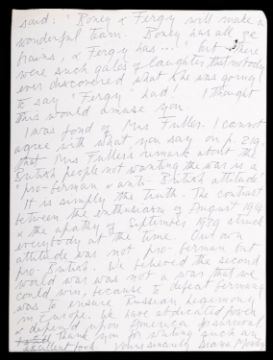 said: "Boney & Fergy will make a
wonderful team. Boney has all the
brains, & Fergy has ..." but there
were such gales of laughter that nobody
ever discovered what she was going
to say 'Fergy' had! I thought
this would amuse you.
I was fond of Mrs Fuller. I cannot
agree with what you say on p. 219,
that Mrs Fuller's remark about the
British people not wanting the war is a
"pro-German & anti-British attitude".
It is simply the truth. The contrast
between the enthusiasm of August 1914
& the apathy of September 1939 struck
everybody at the time. Our own
attitude was not pro-German but
pro-British. We believed the second
world war was not a war that we
could win, because to defeat Germany
was to ensure Russian hegemony
in Europe. We have abdicated power
& depend upon America
thank you for writing such an
excellent book Yours sincerely Diana Mosley